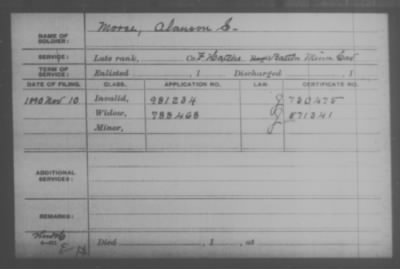 NAME OF SOLDIER: Morse, Alanson E.
SERVICE: Late rank, Co. F Hatchs Battn Minn Cav
TERM OF SERVICE: Enlisted , 1 Discharged , 1
DATE OF FILING. CLASS. APPLICATION NO. LAW. CERTIFICATE NO.
1890 Nov 10 Invalid, 981234 J 730475
Widow, 783468 J 571341
Minor,
ADDITIONAL SERVICES:
REMARKS:
Died , 1 , at